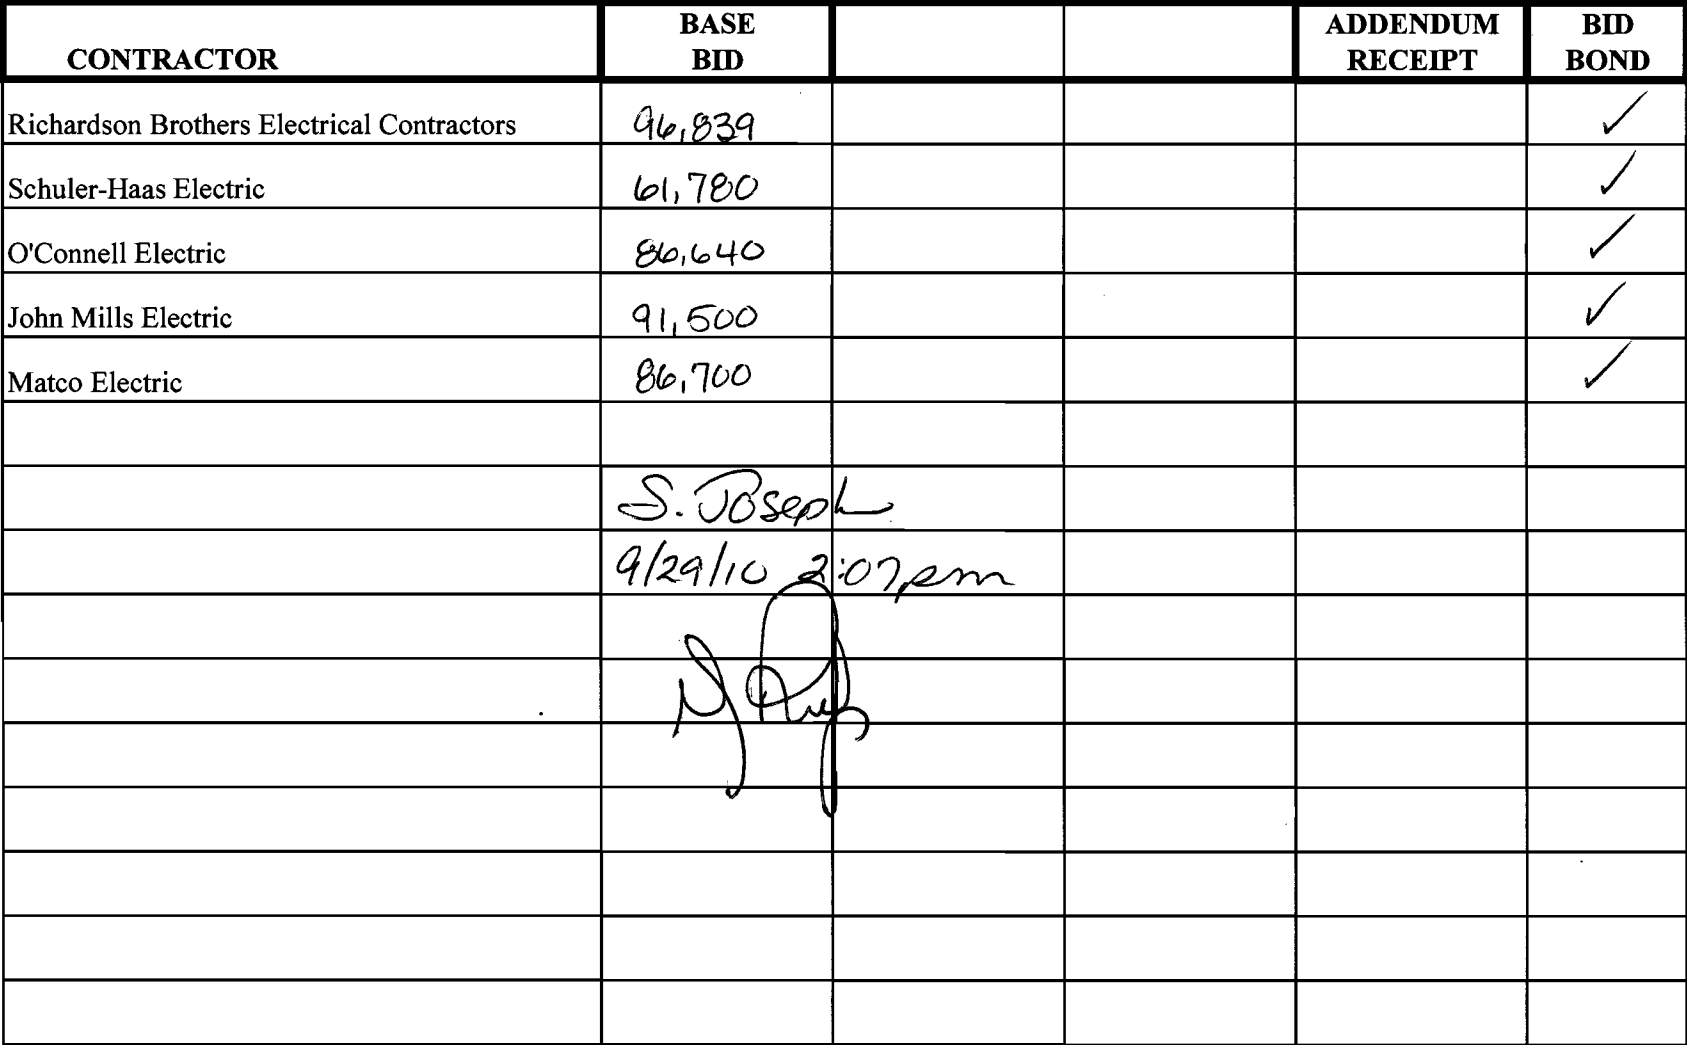 CONTRACTOR BASE BID ADDENDUM RECEIPT BID BOND
Richardson Brothers Electrical Contractors 96,839 ✓
Schuler-Haas Electric 61,780 ✓
O'Connell Electric 86,640 ✓
John Mills Electric 91,500 ✓
Matco Electric 86,700 ✓
S. Joseph
9/29/10 2:07pm